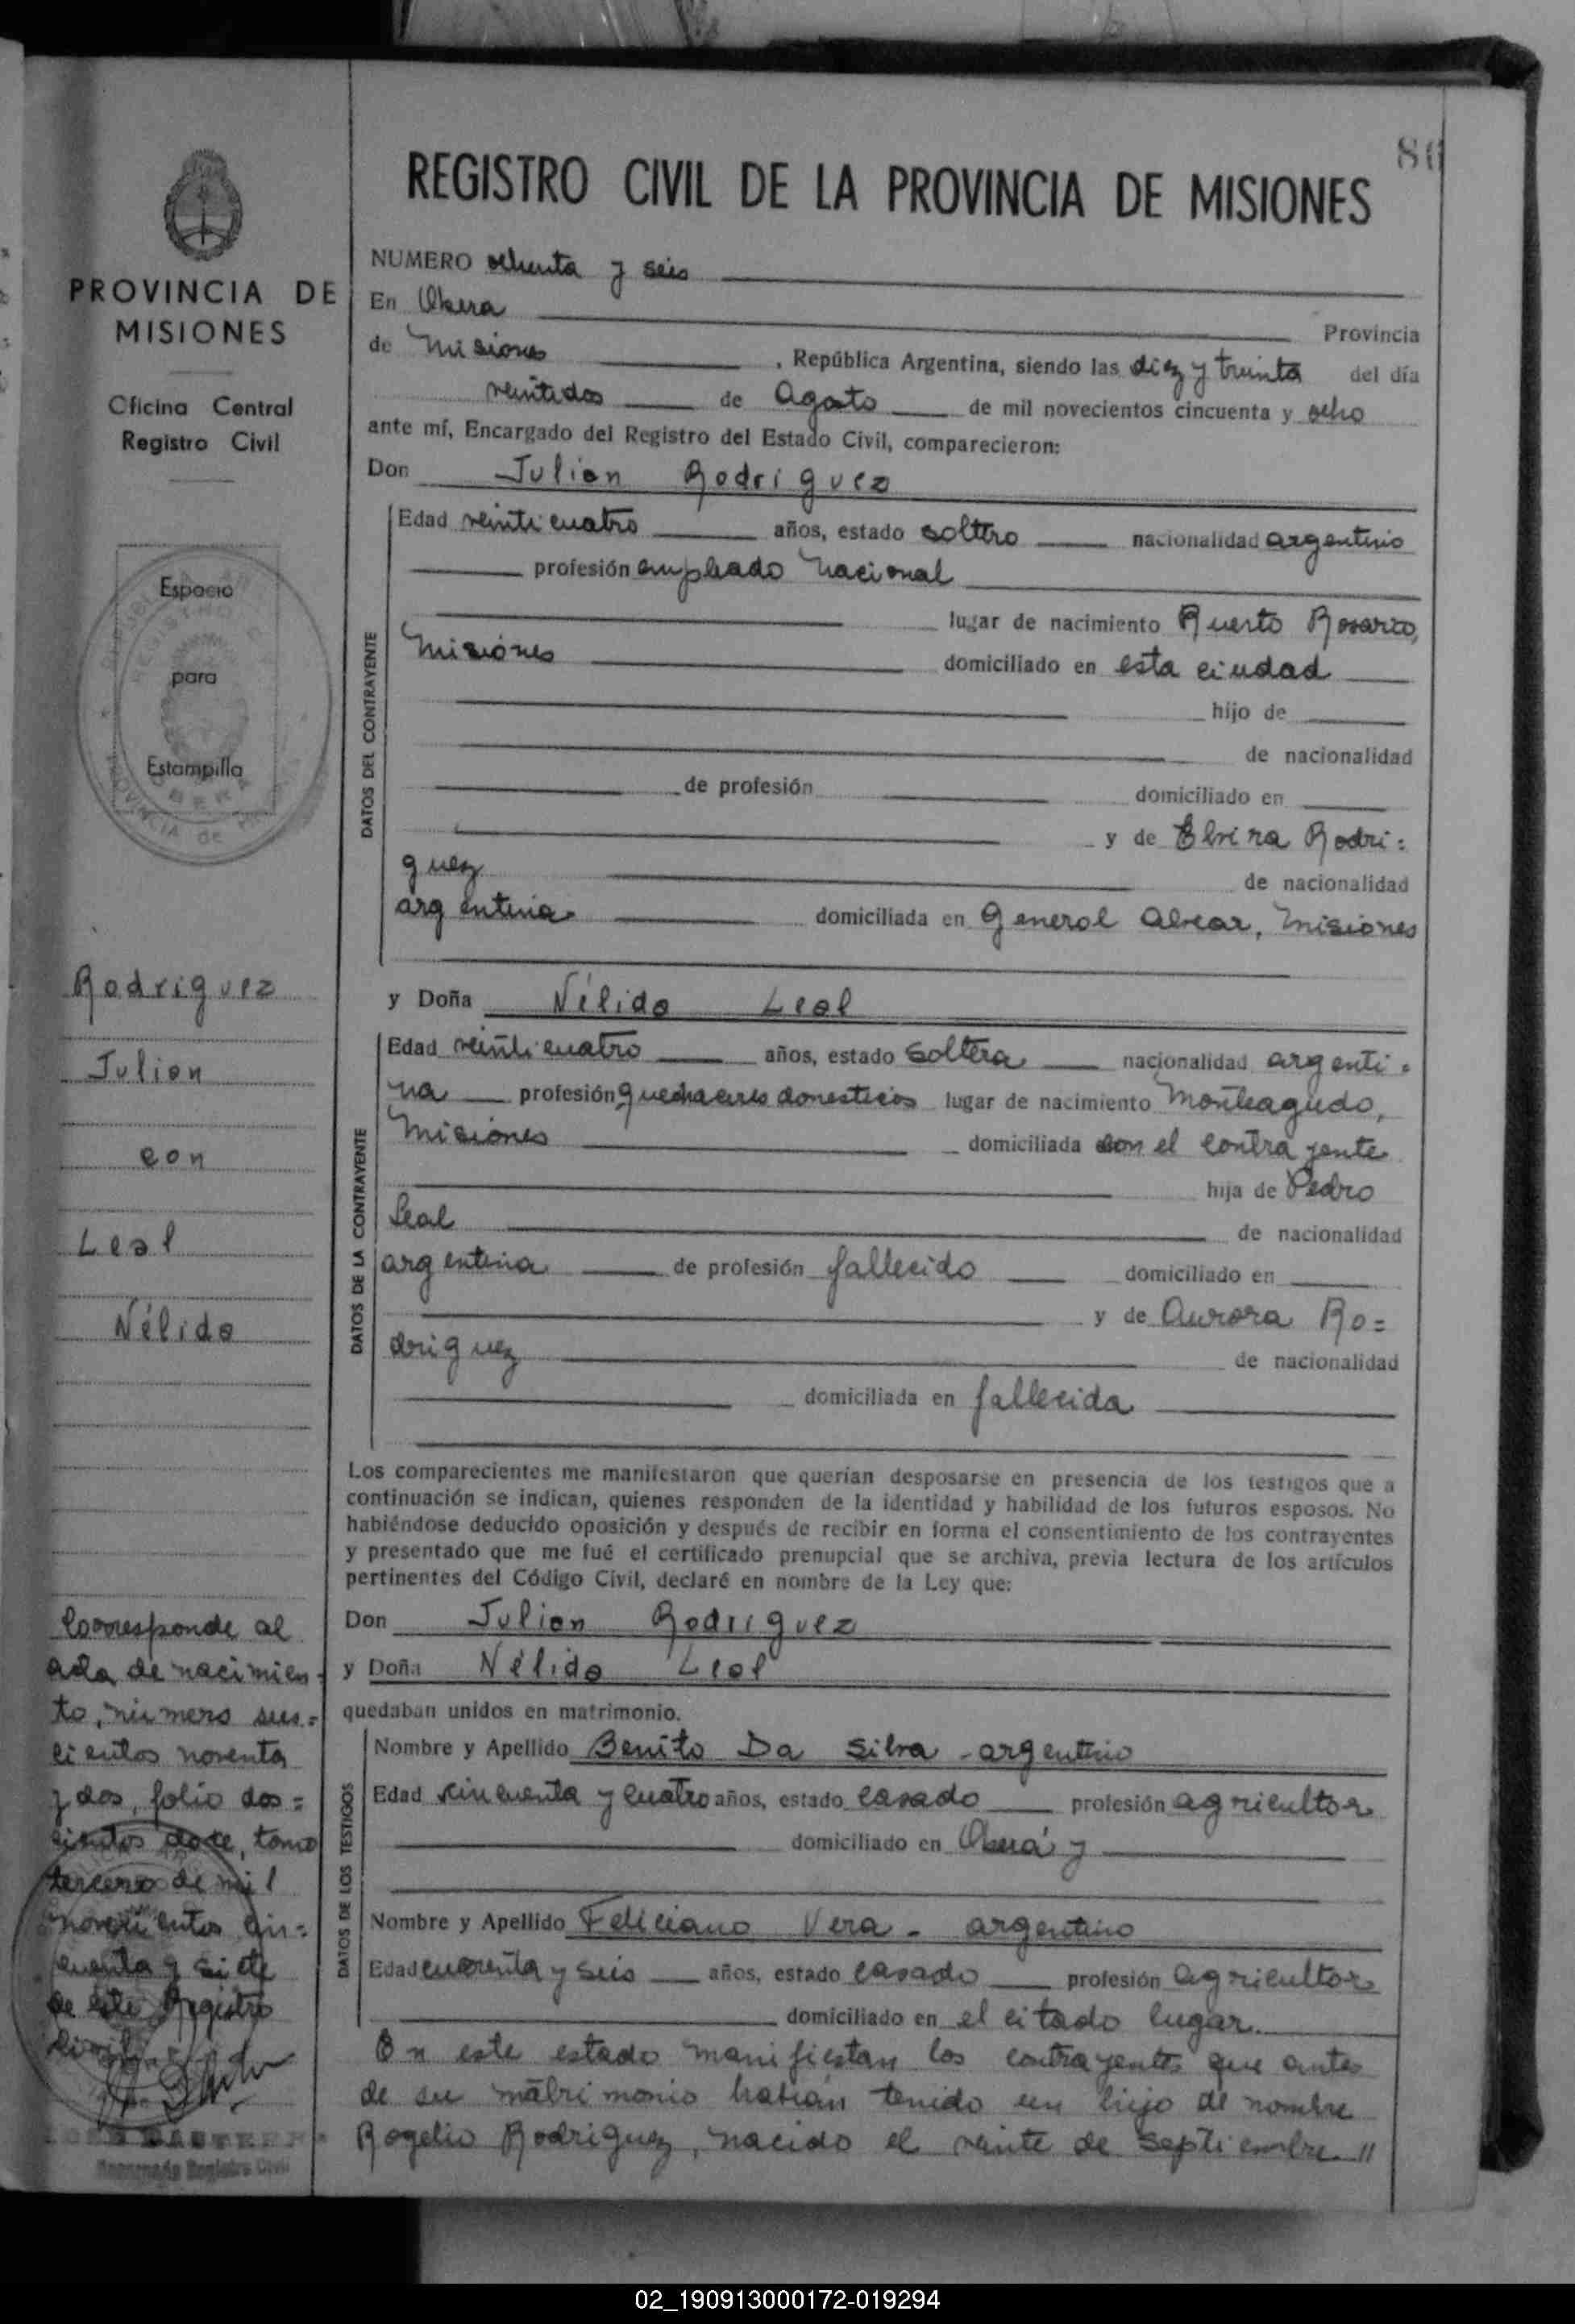 80
REGISTRO CIVIL DE LA PROVINCIA DE MISIONES
PROVINCIA DE
MISIONES
Oficina Central
Registro Civil
Espacio
para
Estampilla
Rodriguez
Julian
con
Leal
Nélida
Corresponde al
acta de nacimien-
to, número seis=
cientos noventa
y dos, folio dos=
cientos doce, tomo
tercero de mil
novecientos cin=
cuenta y siete
de este Registro
Civil
Encargado Registro Civil
NUMERO ochenta y seis
En Obera Provincia
de Misiones , República Argentina, siendo las diez y treinta del día
veintidos de Agosto de mil novecientos cincuenta y ocho
ante mí, Encargado del Registro del Estado Civil, comparecieron:
Don Julian Rodriguez
DATOS DEL CONTRAYENTE
Edad veinticuatro años, estado soltero nacionalidad argentino
profesión empleado nacional
lugar de nacimiento Puerto Rosario,
Misiones domiciliado en esta ciudad
hijo de
de nacionalidad
de profesión domiciliado en
y de Elvira Rodri=
guez de nacionalidad
argentina domiciliada en General Alvear, Misiones
y Doña Nélida Leal
DATOS DE LA CONTRAYENTE
Edad veinticuatro años, estado soltera nacionalidad argenti=
na profesión quehaceres domesticos lugar de nacimiento Monteagudo,
Misiones domiciliada con el contrayente
hija de Pedro
Leal de nacionalidad
argentina de profesión fallecido domiciliado en
y de Aurora Ro=
driguez de nacionalidad
domiciliada en fallecida
Los comparecientes me manifestaron que querían desposarse en presencia de los testigos que a
continuación se indican, quienes responden de la identidad y habilidad de los futuros esposos. No
habiéndose deducido oposición y después de recibir en forma el consentimiento de los contrayentes
y presentado que me fué el certificado prenupcial que se archiva, previa lectura de los artículos
pertinentes del Código Civil, declaré en nombre de la Ley que:
Don Julian Rodriguez
y Doña Nélida Leal
quedaban unidos en matrimonio.
DATOS DE LOS TESTIGOS
Nombre y Apellido Benito Da Silva - argentino
Edad cincuenta y cuatro años, estado casado profesión agricultor
domiciliado en Oberá y
Nombre y Apellido Feliciano Vera - argentino
Edad cuarenta y seis años, estado casado profesión agricultor
domiciliado en el citado lugar.
En este estado manifiestan los contrayentes que antes
de su matrimonio habian tenido un hijo de nombre
Rogelio Rodriguez, nacido el veinte de septiembre //
02_190913000172-019294